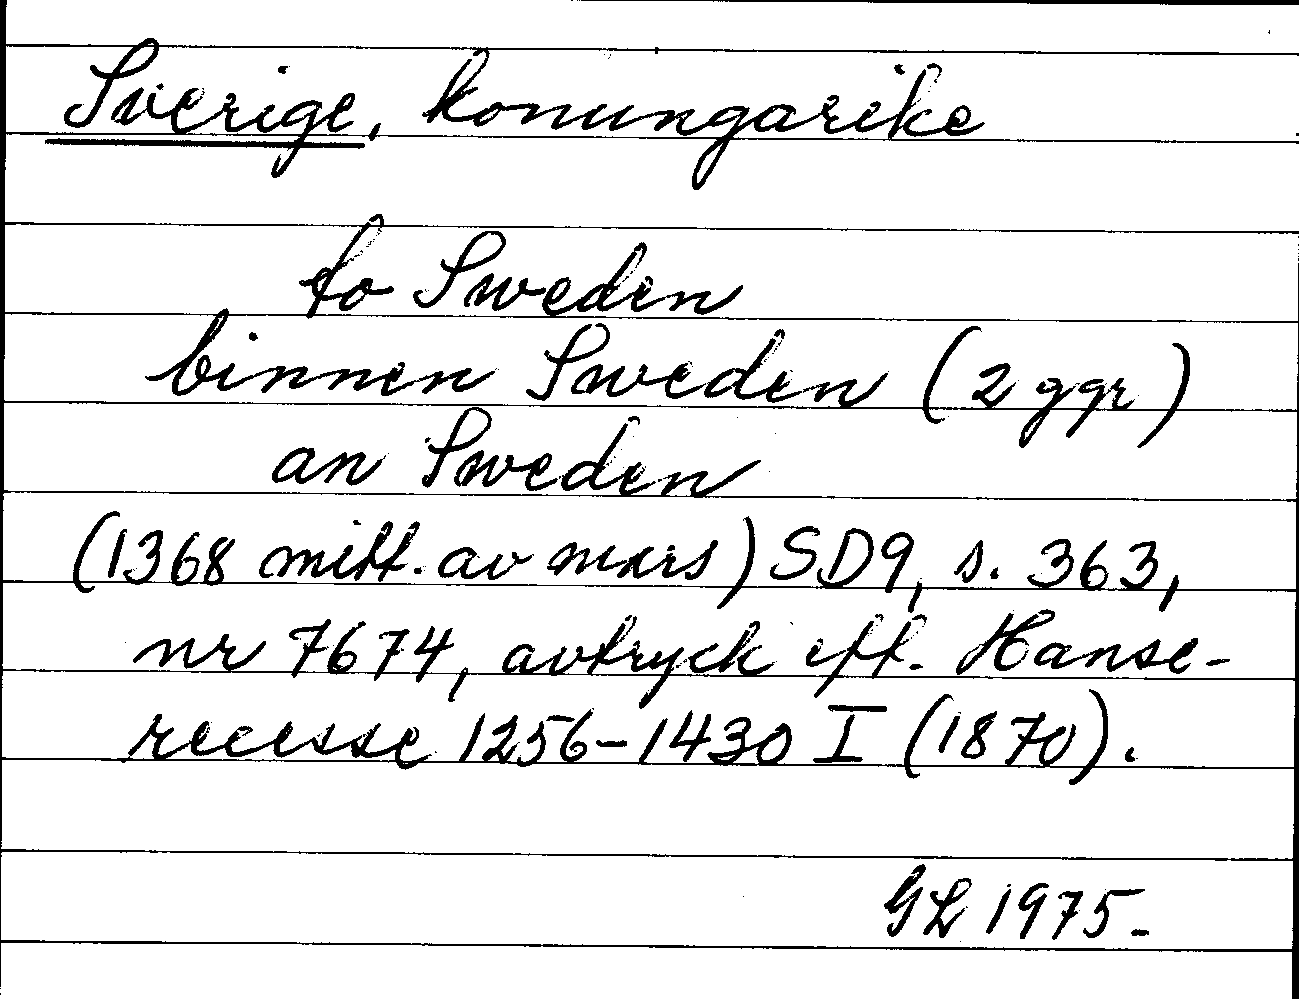 Sverige, konungarike
to Sweden
binnen Sweden (2 ggr)
an Sweden
(1368 mitt. av mars) SD9, s. 363,
nr 7674, avtryck eft. Hanse-
recesse 1256-1430 I (1870).
GL 1975.